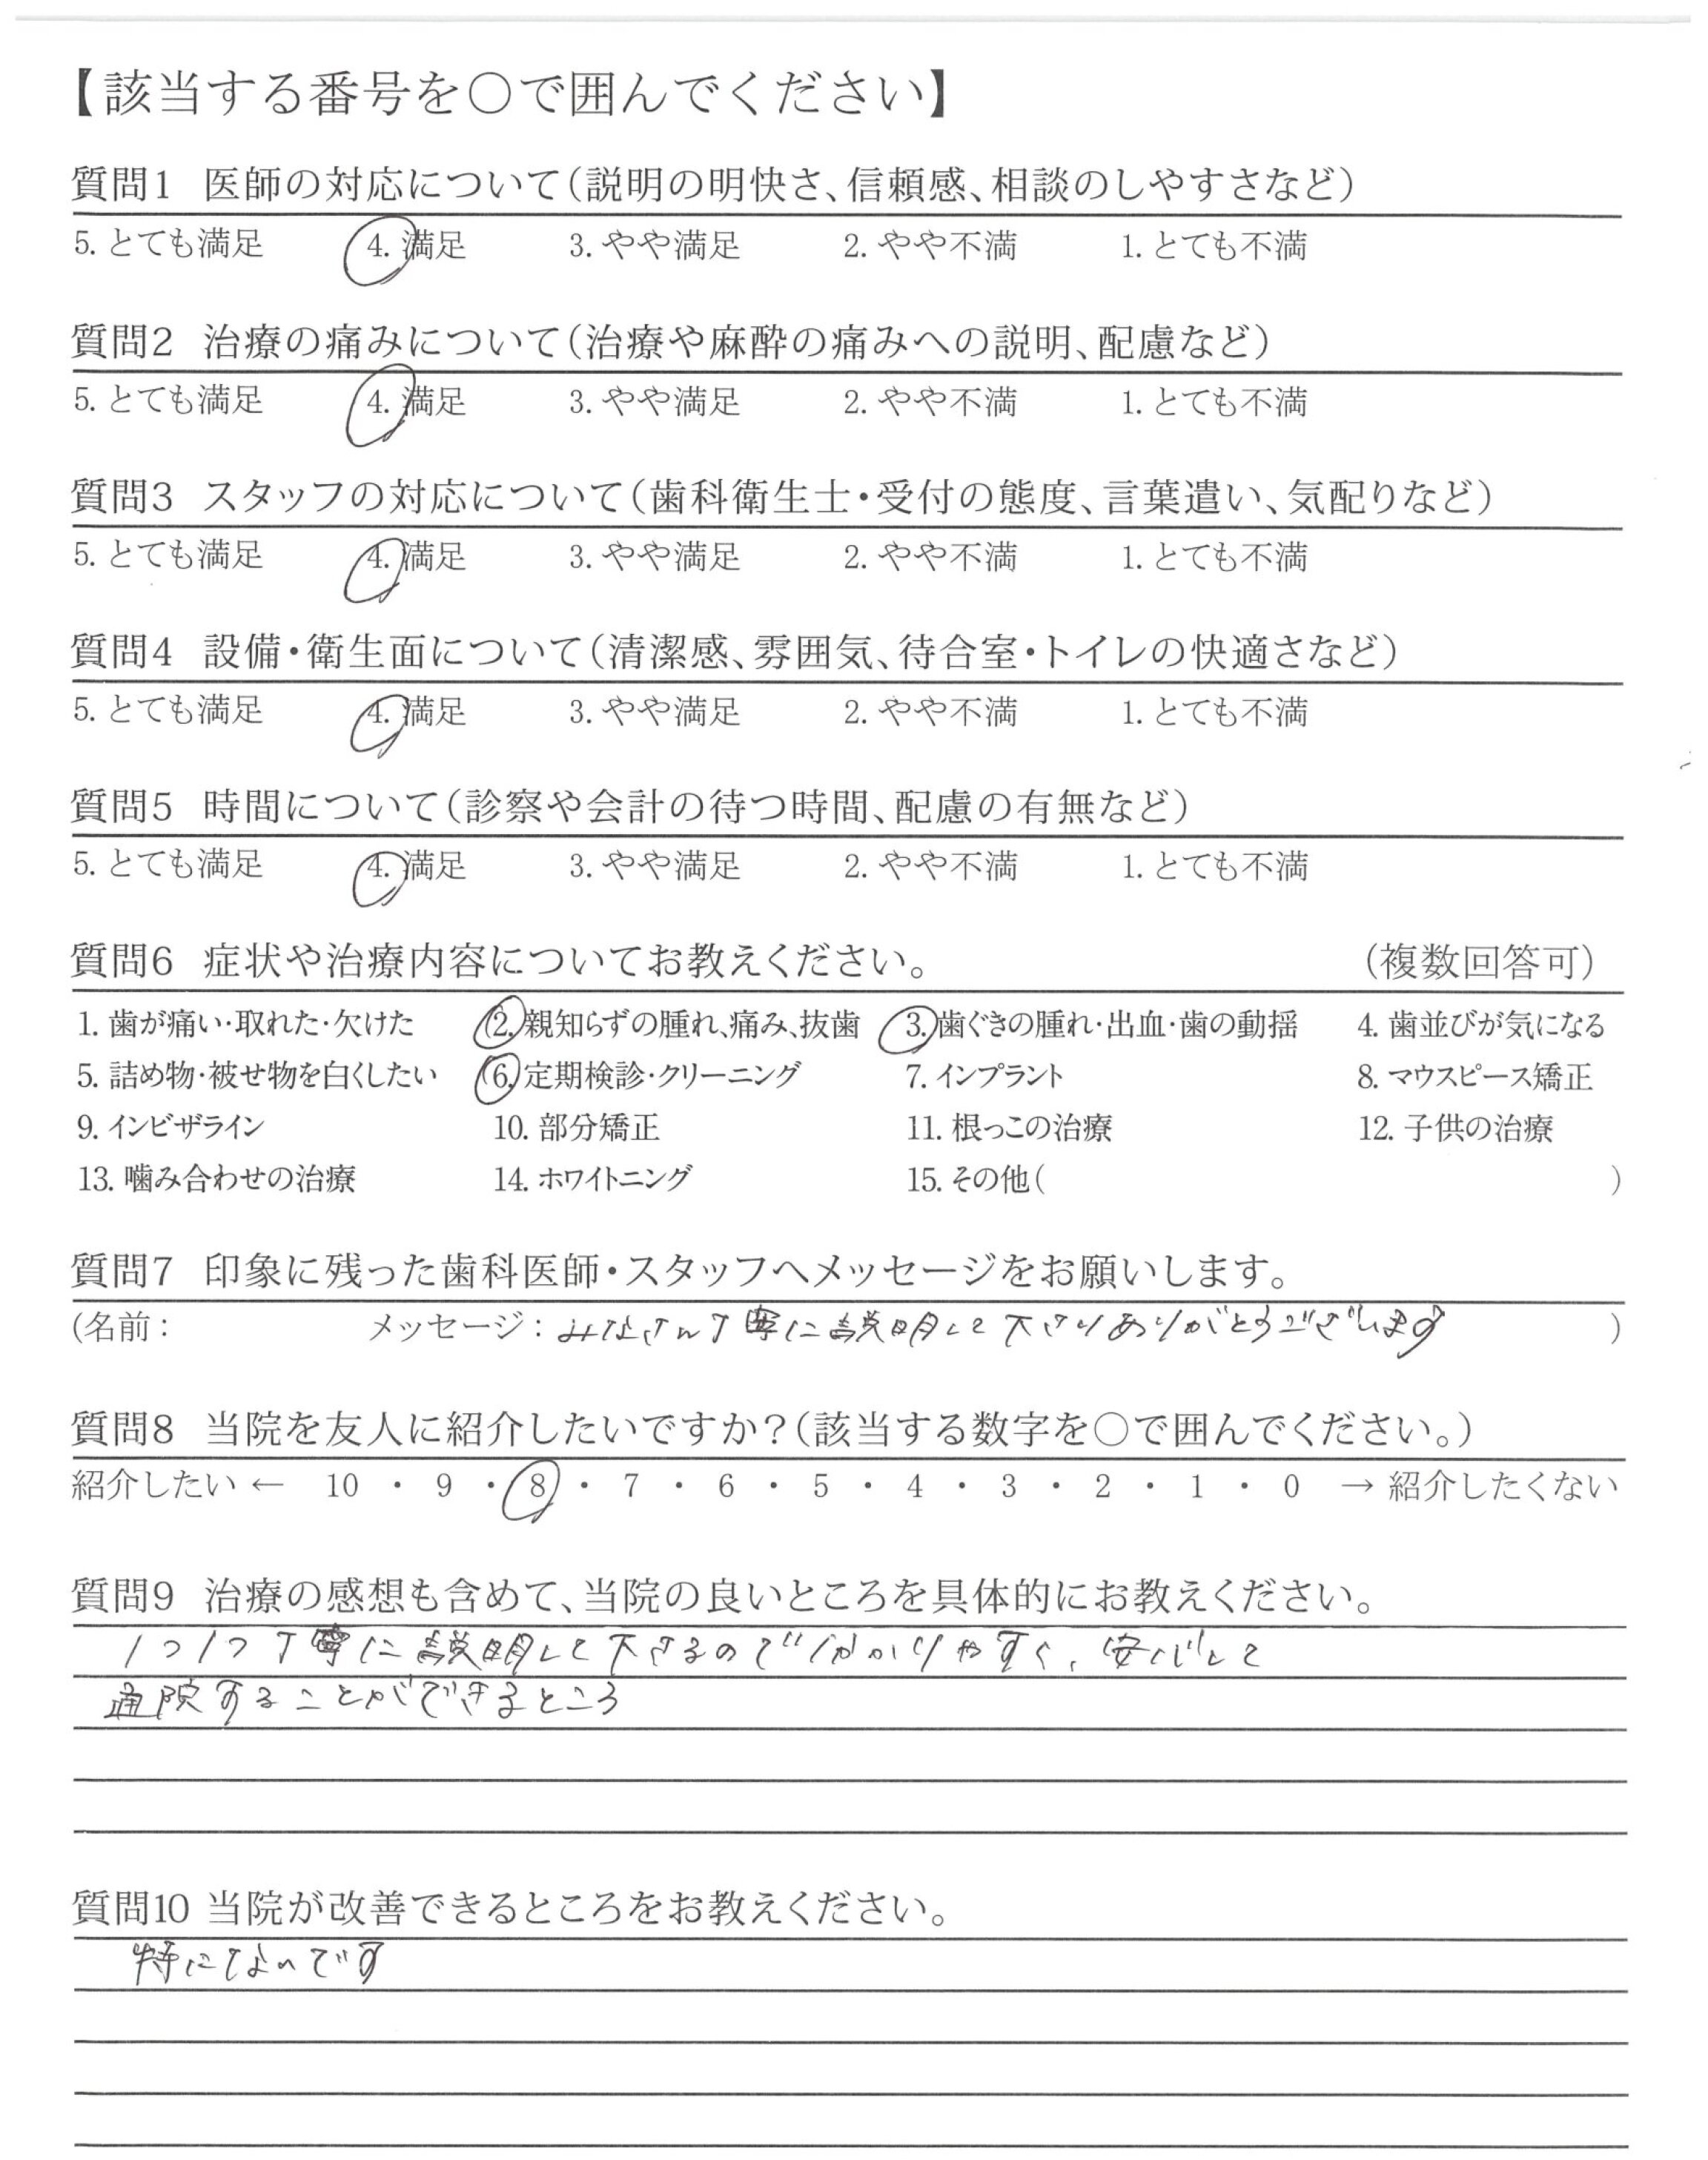 【該当する番号を○で囲んでください】
質問1 医師の対応について(説明の明快さ、信頼感、相談のしやすさなど)
5. とても満足 4. 満足 3. やや満足 2. やや不満 1. とても不満
質問2 治療の痛みについて(治療や麻酔の痛みへの説明、配慮など)
5. とても満足 4. 満足 3. やや満足 2. やや不満 1. とても不満
質問3 スタッフの対応について(歯科衛生士・受付の態度、言葉遣い、気配りなど)
5. とても満足 4. 満足 3. やや満足 2. やや不満 1. とても不満
質問4 設備・衛生面について(清潔感、雰囲気、待合室・トイレの快適さなど)
5. とても満足 4. 満足 3. やや満足 2. やや不満 1. とても不満
質問5 時間について(診察や会計の待つ時間、配慮の有無など)
5. とても満足 4. 満足 3. やや満足 2. やや不満 1. とても不満
質問6 症状や治療内容についてお教えください。 (複数回答可)
1. 歯が痛い・取れた・欠けた 2. 親知らずの腫れ、痛み、抜歯 3. 歯ぐきの腫れ・出血・歯の動揺 4. 歯並びが気になる
5. 詰め物・被せ物を白くしたい 6. 定期検診・クリーニング 7. インプラント 8. マウスピース矯正
9. インビザライン 10. 部分矯正 11. 根っこの治療 12. 子供の治療
13. 噛み合わせの治療 14. ホワイトニング 15. その他( )
質問7 印象に残った歯科医師・スタッフへメッセージをお願いします。
(名前: メッセージ: みなさん丁寧に説明して下さりありがとうございます )
質問8 当院を友人に紹介したいですか?(該当する数字を○で囲んでください。)
紹介したい ← 10 ・ 9 ・ 8 ・ 7 ・ 6 ・ 5 ・ 4 ・ 3 ・ 2 ・ 1 ・ 0 → 紹介したくない
質問9 治療の感想も含めて、当院の良いところを具体的にお教えください。
1つ1つ丁寧に説明して下さるので分かりやすく、安心して
通院することができるところ
質問10 当院が改善できるところをお教えください。
特にないです